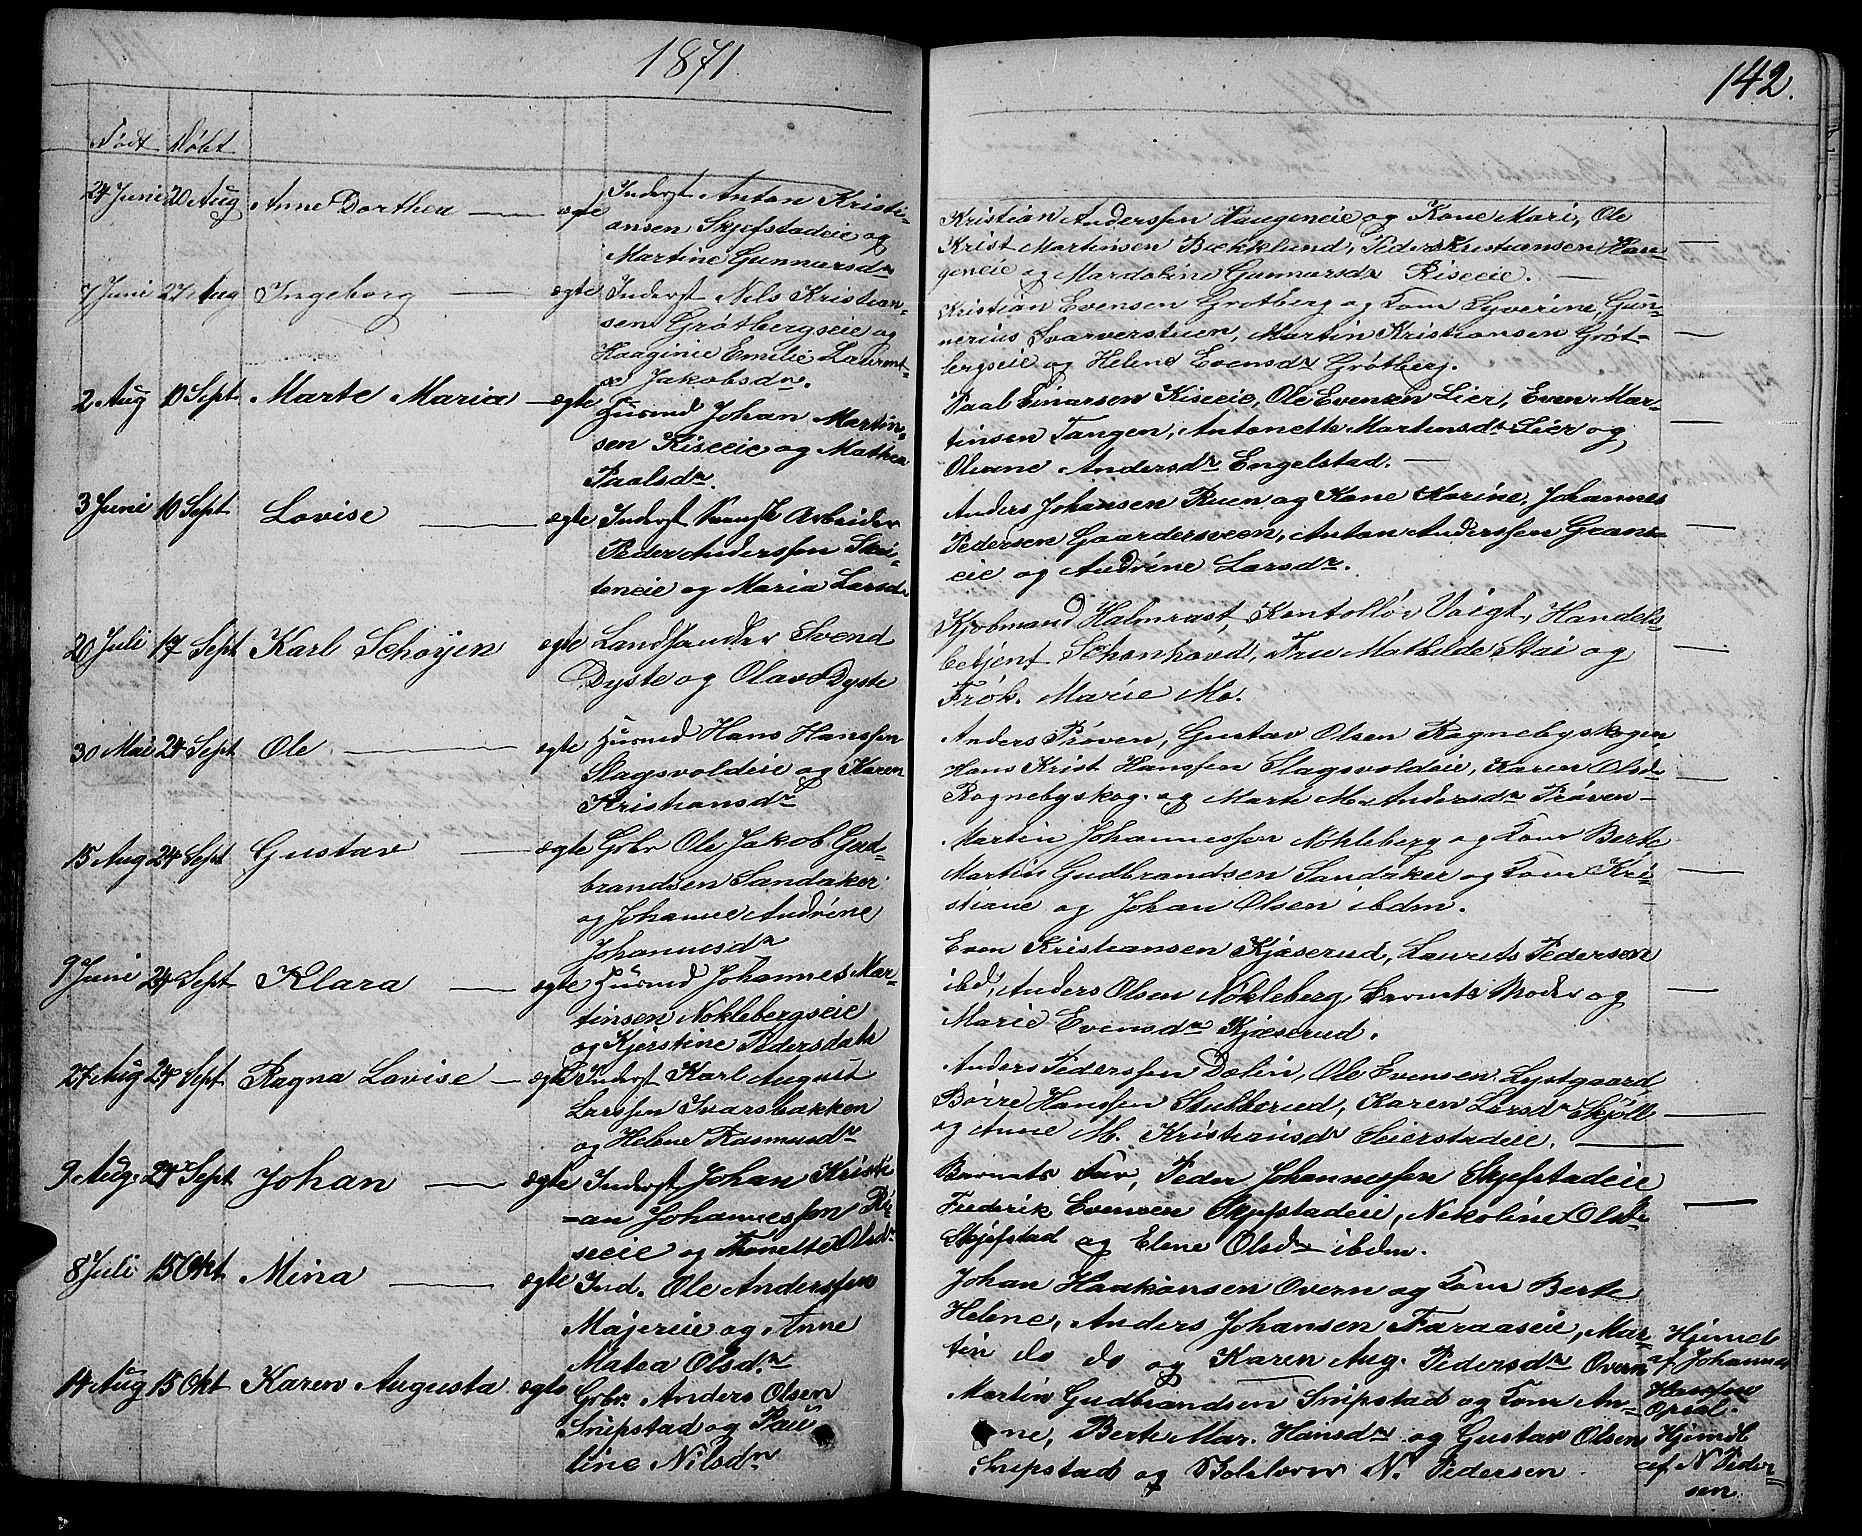 1871.
142.
Født Døbt
24 Juni 20 Aug Anne Dorthea — ægte Inderst Anton Kristi-
ansen Skjefstadeie og
Martine Gunnarsdr
7 Juni 27 Aug Ingeborg — ægte Inderst Nils Kristian-
sen Grøtbergseie og
Haaginie Emilie Laurent-
se Jakobsdr.
2 Aug 10 Sept Marte Maria — ægte Husmd Johan Martin-
sen Kiseeie og Mathea
Paalsdr.
3 Juni 10 Sept Lovise — ægte Inderst Svensk Arbeider
Peder Anderssen
teneie og Maria Larsdr
20 Juli 17 Sept Karl Schøyen ægte Landhandler Svend
Dyste og Olava Dyste
30 Mai 24 Sept Ole — ægte Husmd Hans Hanssen
Slagsvoldeie og Karen
Kristiansdr
15 Aug 24 Sept Gustav — ægte Gbr Ole Jakob Gud-
brandsen Sandaker
og Johanne Andrine
Johannesdr
9 Juni 24 Sept Klara — ægte Husmd Johannes Mar-
tinsen Nøklebergseie
og Kjerstine Pedersdatr
27 Aug 24 Sept Ragna Lovise — ægte Inderst Karl August
Larssen Ivarsbakken
og Helene Rasmusdr
9 Aug. 24 Sept Johan — ægte Inderst Johan Kristi
-an Johannessen Ri-
seeie og Tonette Olsdr
8 Juli 15 Okt Mina — ægte Ind. Ole Anderssen
Majerie og Anne
Matea Olsdr.
14 Aug 15 Okt Karen Augusta ægte Gbr. Anders Olsen
Snipstad og Pau
line Nilsdr
Kristian Anderssen Haugeneie og Kone Mari, Ole
Krist Martinsen Bækklund, Peder Kristiansen Hau-
geneie og Mardoline Gunnarsdr Riseeie. —
Kristian Evensen Grøtberg og Kone Syverine, Gun-
nerius Svarverstuen, Martin Kristiansen Grøt-
bergseie og Helene Evensdr Grøtberg.
Paal Einarsen Kiseeie, Ole Evensen Lier, Even Mar-
tinsen Tangen, Antonette Martinsdr Lier og
Oline Andersdr Engelstad. —
Anders Johansen Ruen og Kone Karine, Johannes
Pedersen Gaardersveen, Anton Anderssen Grans-
eie og Andrine Larsdr.
Kjøbmand Halmrast, Kontollør Voigt, Handels-
betjent Schonhovd, Frue Mathilde Stai og
Frøk. Marie Mo.
Anders Prøven, Gustav Olsen Rognebyskogen
Hans Krist Hanssen Slagsvoldeie, Karen Olsdr
Rognebyskog. og Marte M. Andersdr Prøven —
Martin Johannessen Nøkleberg og Kone Berte
Martin Gudbrandsen Sandaker og Kone Kri-
stiane og Johan Olsen ibdm.
Even Kristiansen Kjæserud, Laurits Pedersen
ibd, Anders Olsen Nøkleberg, Barnets Moder og
Marie Evensdr Kjæserud.
Anders Pederssen Dælin, Ole Evensen Lystgaard,
Børre Hanssen Stubberud, Karen Larsdr Skjøll
og Anne M. Kristiansdr Seierstadeie. —
Barnets Far, Peder Johannessen Skjefstadeie
Frederik Evensen Skjefstadeie, Nikoline Olsdr
Skjefstad og Elene Olsdr ibdm.
Johan Haakonsen Overn og Kone Berte
Helene, Anders Johansen Faraaseie, Mar-
tin do do og Karen Aug. Pedersdr Overn
Hjemdt
af Johannes
Hanssen
Opsal.
Martin Gudbrandsen Snipstad og Kone An-
ne, Berte Mar. Hansdr og Gustav Olsen
Snipstad og N. Pedersen
Hjemdt
af N Peder
sen